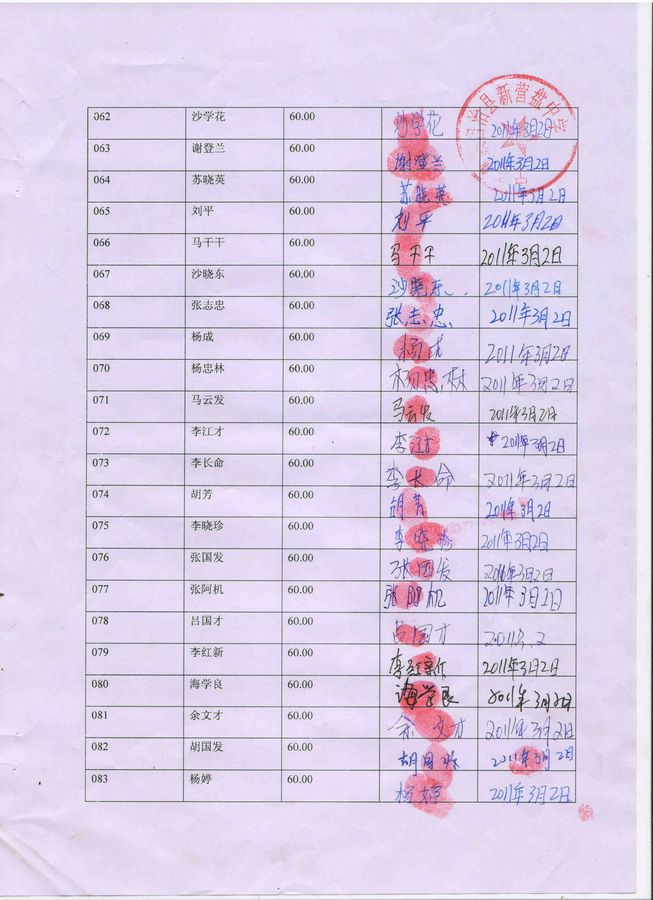 治县新营盘中学
062 沙学花 60.00 沙学花 2011年3月2日
063 谢登兰 60.00 谢登兰 2011年3月2日
064 苏晓英 60.00 苏晓英 2011年3月2日
065 刘平 60.00 刘平 2011年3月2日
066 马干干 60.00 马干干 2011年3月2日
067 沙晓东 60.00 沙晓东 2011年3月2日
068 张志忠 60.00 张志忠 2011年3月2日
069 杨成 60.00 杨成 2011年3月2日
070 杨忠林 60.00 杨忠林 2011年3月2日
071 马云发 60.00 马云发 2011年3月2日
072 李江才 60.00 李江才 2011年3月2日
073 李长命 60.00 李长命 2011年3月2日
074 胡芳 60.00 胡芳 2011年3月2日
075 李晓珍 60.00 李晓珍 2011年3月2日
076 张国发 60.00 张国发 2011年3月2日
077 张阿机 60.00 张阿机 2011年3月2日
078 吕国才 60.00 吕国才 2011.3.2
079 李红新 60.00 李红新 2011年3月2日
080 海学良 60.00 海学良 2011年3月2日
081 余文才 60.00 余文才 2011年3月2日
082 胡国发 60.00 胡国发 2011年3月2日
083 杨婷 60.00 杨婷 2011年3月2日